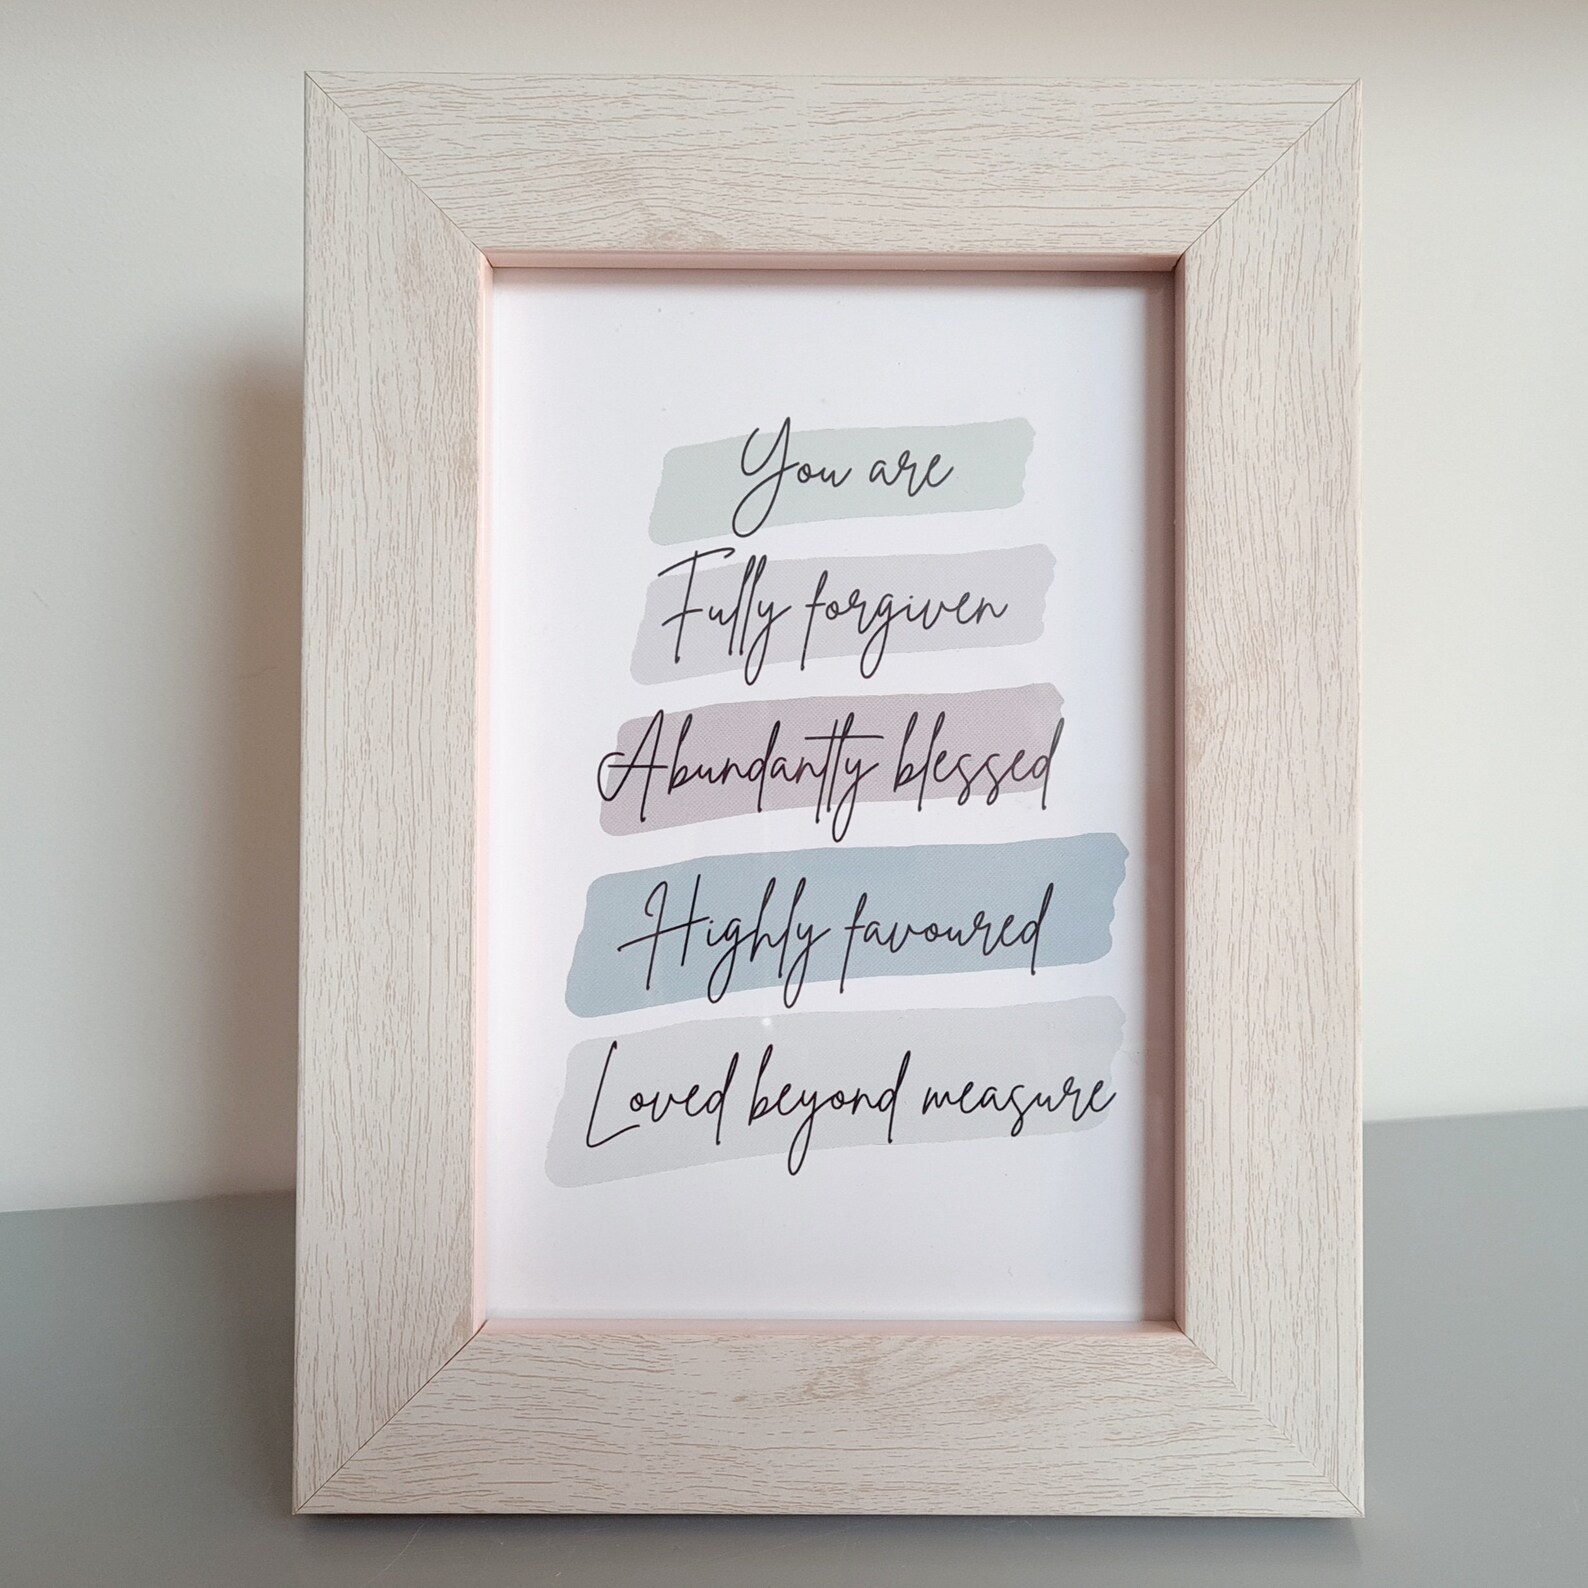 You are
Fully forgiven
Abundantly blessed
Highly favoured
Loved beyond measure